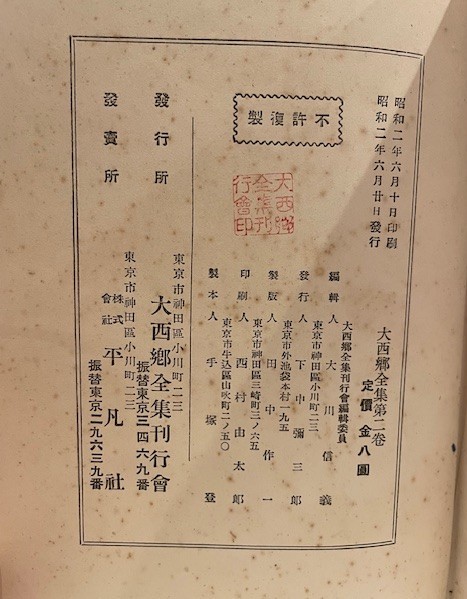 昭和二年六月十日印刷
昭和二年六月廿日發行
不許復製
大西鄉全集刊行會印
大西鄉全集第二卷
定價金八圓
大西鄉全集刊行會編輯委員
編輯人 大川信義
東京市神田區小川町二三
發行人 下中彌三郎
東京市外池袋本村一九五
製版人 田中作一
東京市神田區三崎町三ノ六五
印刷人 西村由太郎
東京市牛込區山吹町二ノ五〇
製本人 手塚登
東京市神田區小川町二三
發行所 大西鄉全集刊行會
振替東京三四六九番
東京市神田區小川町二三
發賣所 株式會社 平凡社
振替東京二九六三九番